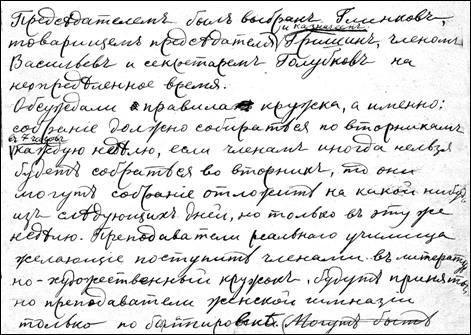 Предсѣдателемъ былъ выбранъ Глинковъ,
товарищемъ предсѣдателя и казначеемъ Гришинъ, членомъ
Васильевъ и секретаремъ Голубковъ на
неопредѣленное время.
Обсуждали правила кружка, а именно:
собраніе должно собираться по вторникамъ
въ 7 часовъ
каждую недѣлю, если членамъ иногда нельзя
будетъ собраться во вторникъ, то они
могутъ собраніе отложить на какой нибудь
изъ слѣдующихъ дней, но только въ эту же
недѣлю. Преподаватели реальнаго училища
желающіе поступить членами въ литератур
но-художественный кружокъ, будутъ приняты,
но преподаватели женской гимназіи
только по баллотировкѣ. (Могутъ быть